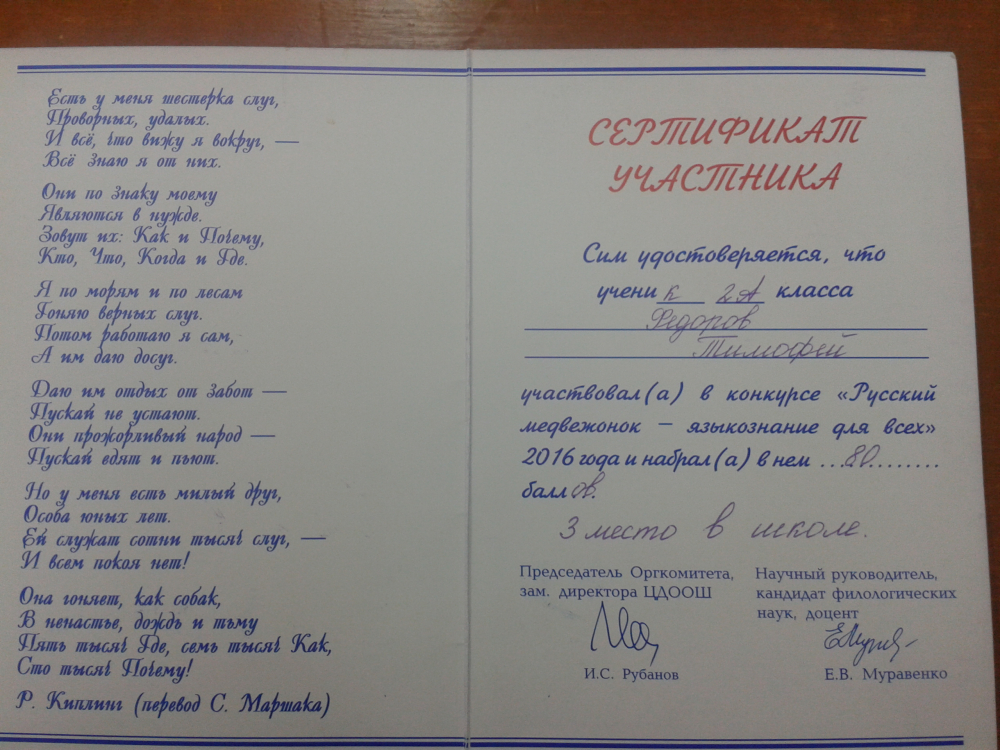 Есть у меня шестерка слуг,
Проворных, удалых.
И всё, что вижу я вокруг, —
Всё знаю я от них.
Они по знаку моему
Являются в нужде.
Зовут их: Как и Почему,
Кто, Что, Когда и Где.
Я по морям и по лесам
Гоняю верных слуг.
Потом работаю я сам,
А им даю досуг.
Даю им отдых от забот —
Пускай не устают.
Они прожорливый народ —
Пускай едят и пьют.
Но у меня есть милый друг,
Особа юных лет.
Ей служат сотни тысяч слуг, —
И всем покоя нет!
Она гоняет, как собак,
В ненастье, дождь и тьму
Пять тысяч Где, семь тысяч Как,
Сто тысяч Почему!
Р. Киплинг (перевод С. Маршака)
СЕРТИФИКАТ
УЧАСТНИКА
Сим удостоверяется, что
ученик 2А класса
Федоров
Тимофей
участвовал(а) в конкурсе «Русский
медвежонок – языкознание для всех»
2016 года и набрал(а) в нем ...80........
баллов.
3 место в школе.
Председатель Оргкомитета,
зам. директора ЦДООШ
И.С. Рубанов
Научный руководитель,
кандидат филологических
наук, доцент
Е.В. Муравенко